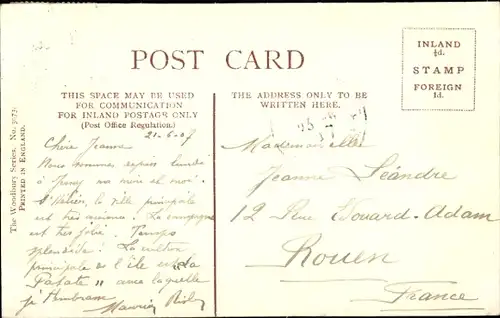 POST CARD
THIS SPACE MAY BE USED
FOR COMMUNICATION
FOR INLAND POSTAGE ONLY
(Post Office Regulation)
THE ADDRESS ONLY TO BE
WRITTEN HERE.
INLAND
½d.
STAMP
FOREIGN
1d.
The Woodbury Series. No.
PRINTED IN ENGLAND.
21-6-07
Chère Jeanne
Nous sommes depuis lundi
à Jersey ma mère et moi.
St Hélier, la ville principale
est très animée. La campagne
est très jolie. Temps
splendide. La culture
principale de l'île est "La
Patate" avec laquelle
je t'embrasse
Maurice
Mademoiselle
Jeanne Léandre
12 Rue Edouard-Adam
Rouen
France